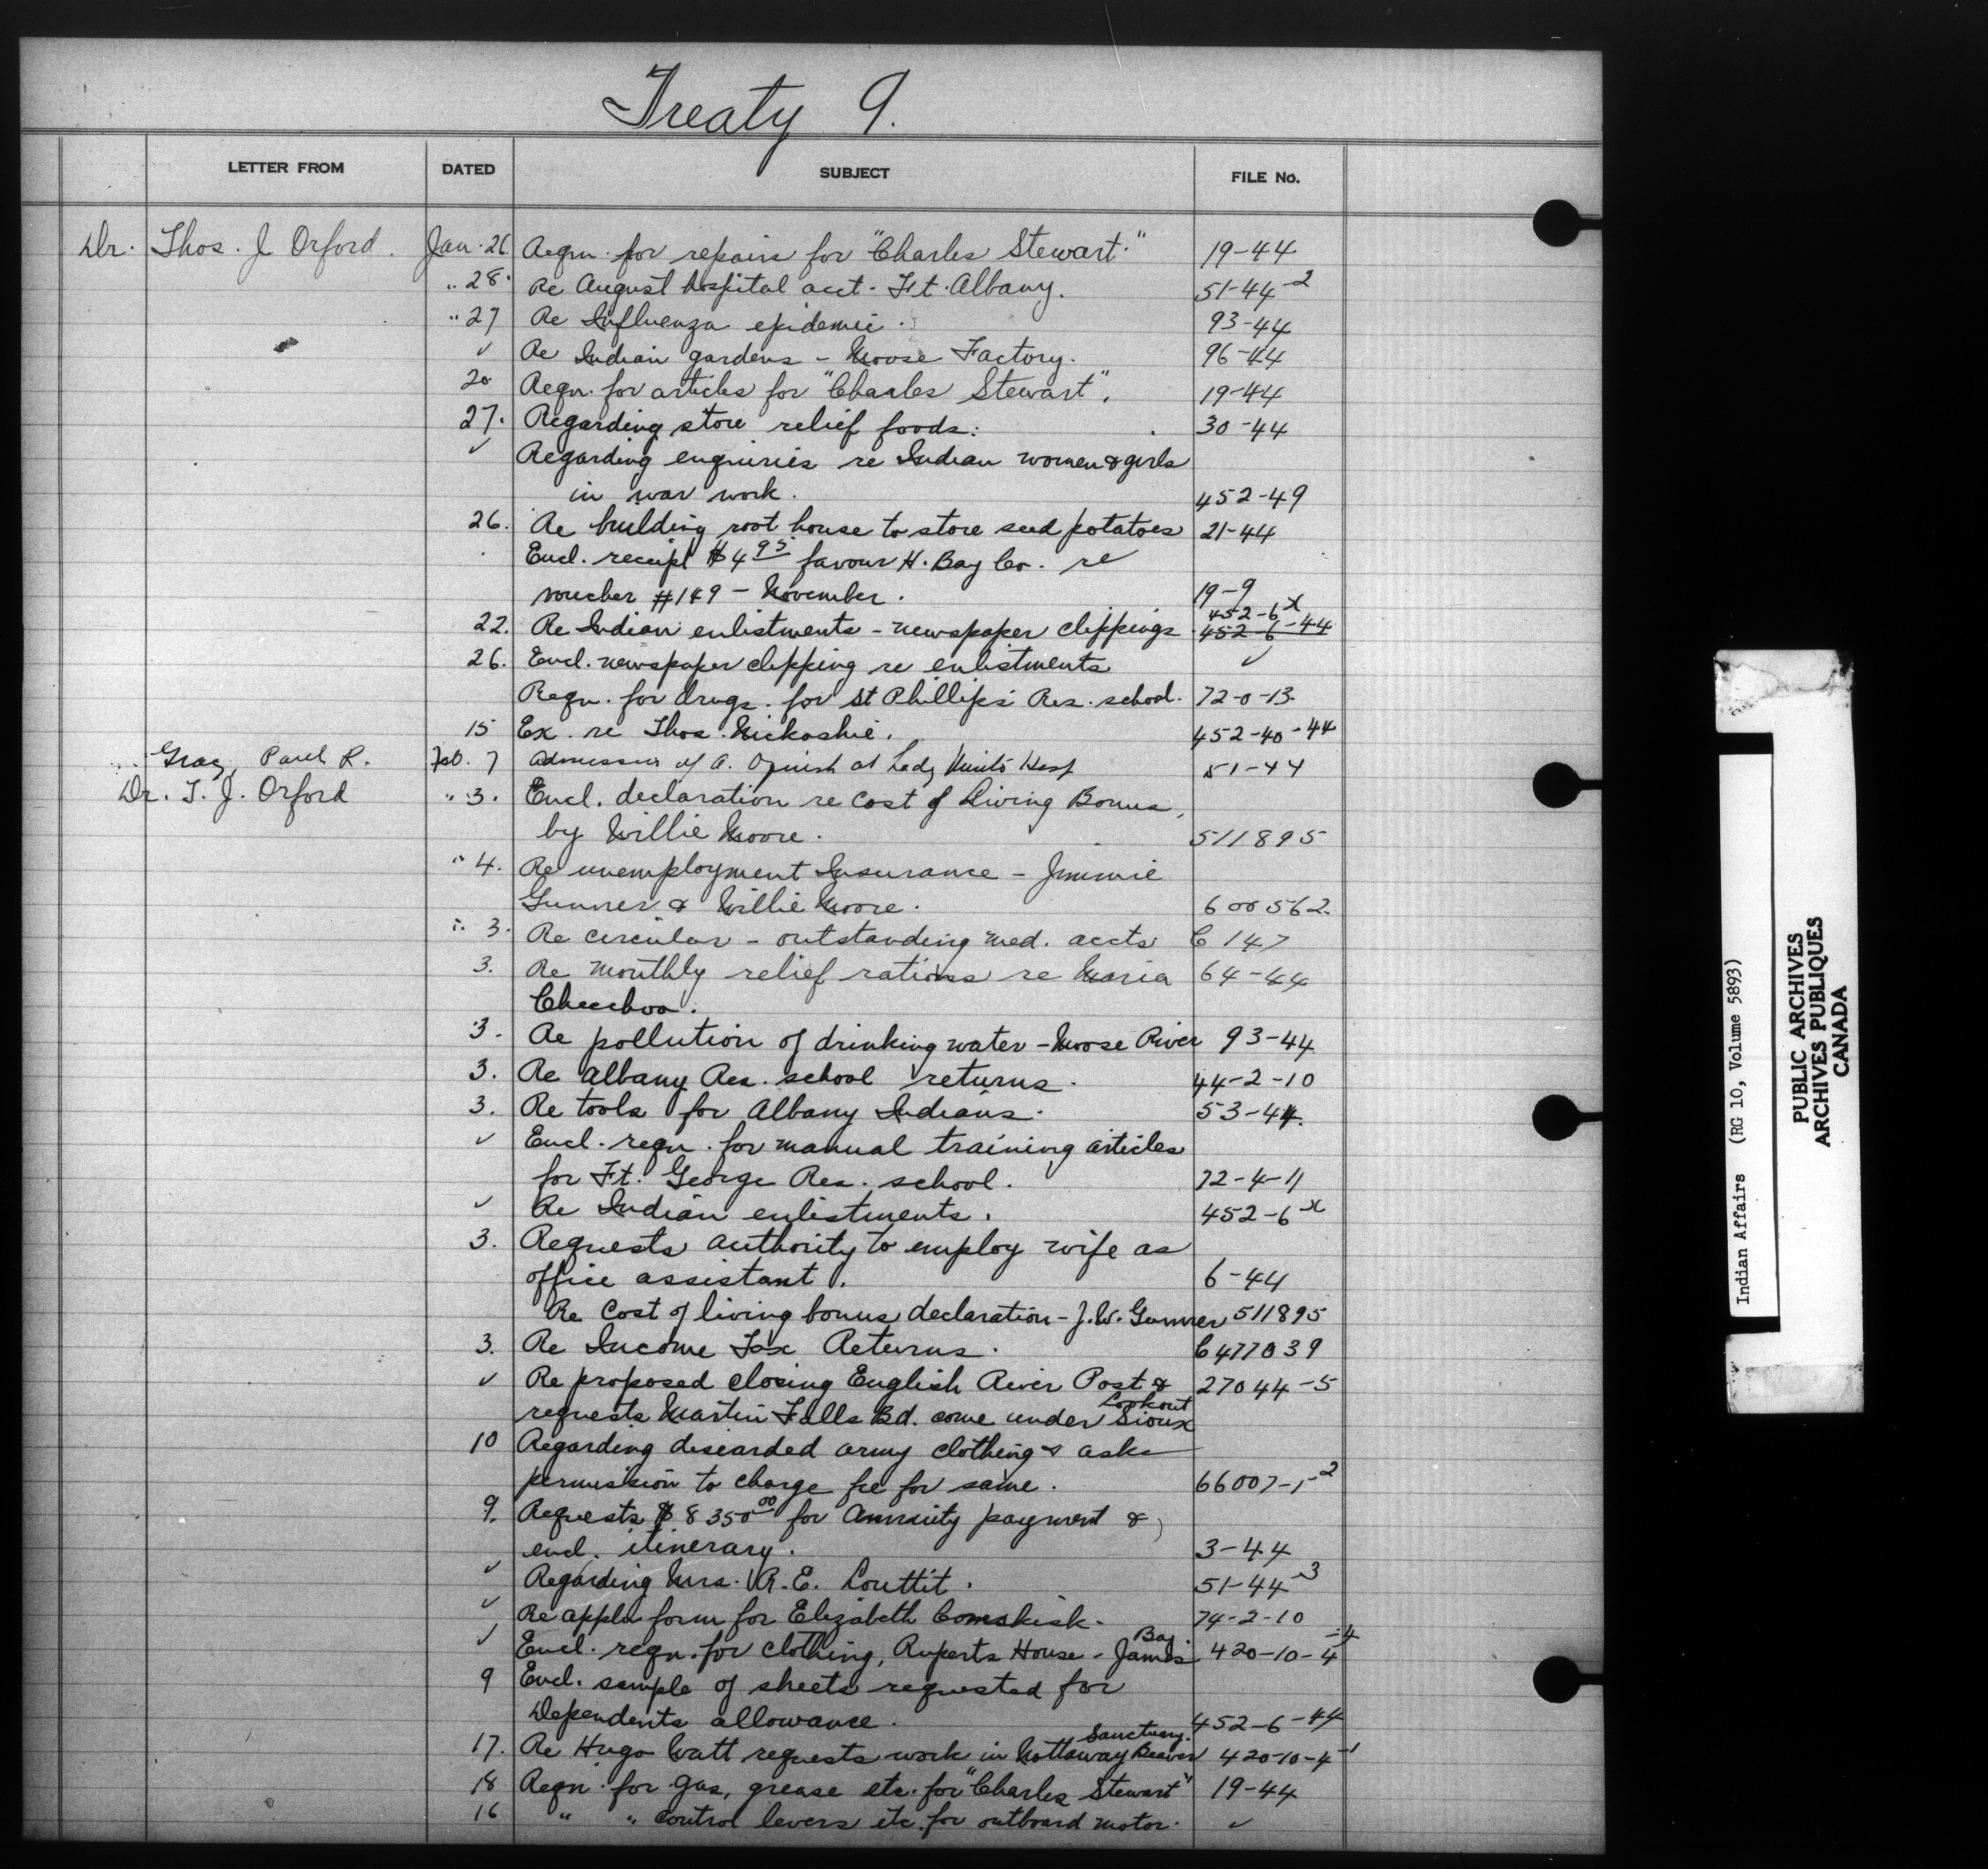 Treaty 9.
LETTER FROM DATED SUBJECT FILE No.
Dr. Thos. J Orford. Jan. 26. Reqn. for repairs for "Charles Stewart." 19-44
" 28. Re August hospital acct. Ft. Albany. 51-44-2
" 27 Re Influenza epidemic. 93-44
✓ Re Indian gardens - Moose Factory. 96-44
20 Reqn. for articles for "Charles Stewart". 19-44
27. Regarding store relief foods. 30-44
✓ Regarding enquiries re Indian women & girls
in war work. 452-49
26. Re building root house to store seed potatoes 21-44
Encl. receipt $4.95 favour H. Bay Co. re
voucher #149 - November. 19-9
452-6x
22. Re Indian enlistments - newspaper clippings 452-6-44
26. Encl. newspaper clipping re enlistments ✓
Reqn. for drugs. for St Phillips Res. school. 72-0-13.
15 Ex. re Thos. Nickoshie. 452-40-44
Gray, Paul R. Feb. 7 Admission of A. at Lady Minto Hosp 51-44
Dr. T. J. Orford " 3. Encl. declaration re Cost of Living Bonus,
by Willie Moore. 511895
" 4. Re unemployment Insurance - Jimmie
Gunner & Willie Moore. 600562.
" 3. Re circular - outstanding med. accts C 147
3. Re monthly relief rations re Maria 64-44
Cheechoo.
3. Re pollution of drinking water - Moose River 93-44
3. Re Albany Res. school returns. 44-2-10
3. Re tools for Albany Indians. 53-44.
✓ Encl. reqn. for manual training articles
for Ft. George Res. school. 72-4-11
✓ Re Indian enlistments. 452-6x
3. Requests authority to employ wife as
office assistant. 6-44
Re Cost of living bonus declaration - J.W. Gunner 511895
3. Re Income Tax Returns. C 477039
✓ Re proposed closing English River Post & 27044-5
requests Martin Falls Bd. come under Sioux Lookout
10 Regarding discarded army clothing & asks
permission to charge fee for same. 66007-1-2
9. Requests $8350.00 for Annuity payment &
encl. itinerary. 3-44
✓ Regarding Mrs. R. E. Louttit. 51-44-3
✓ Re appln form for Elizabeth Comskisk. 74-2-10
✓ Encl. reqn. for clothing, Ruperts House - James Bay. 420-10-4-4
9 Encl. sample of sheets requested for
Dependents allowance. 452-6-44
17. Re Hugo Watt requests work in Nottaway Beaver Sanctuary. 420-10-4-1
18 Reqn. for gas, grease etc. for "Charles Stewart" 19-44
16 " " control levers etc. for outboard motor. ✓
Indian Affairs (RG 10, Volume 5893)
PUBLIC ARCHIVES
ARCHIVES PUBLIQUES
CANADA